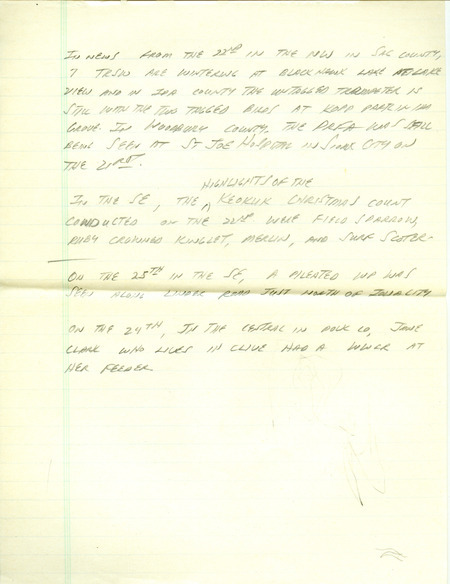 In news from the 22nd in the NW in Sac County,
7 TRSW are wintering at Black Hawk Lake at Lake
View and in Ida County the untagged Trumpeter is
still with the two tagged birds at Kopp Park in Ida
Grove. In Woodbury County, the PRFA was still
being seen at St Joe Hospital in Sioux City on
the 21st.
Highlights of the
In the SE, the ^ Keokuk Christmas count
conducted on the 22nd were Field Sparrow,
Ruby Crowned Kinglet, Merlin, and Surf Scoter.
On the 25th in the SE, a Pileated WP was
seen along Linder Road just north of Iowa City
On the 24th, in the Central in Polk Co, Jane
Clark who lives in Clive had a at
her feeder